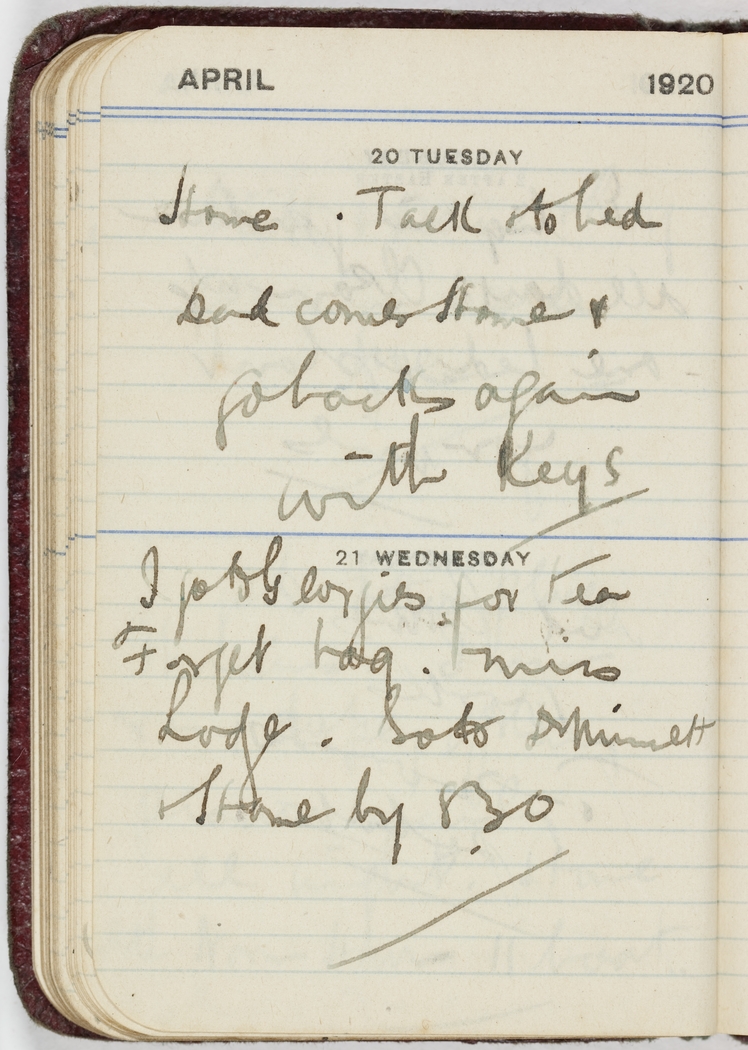 APRIL 1920
20 TUESDAY
Home . Talk & to bed
Dad comes Home &
go back again
with Keys
21 WEDNESDAY
I go to Georgies for Tea
Forget bag. miss
Lodge. Go to
& Home by 8.30